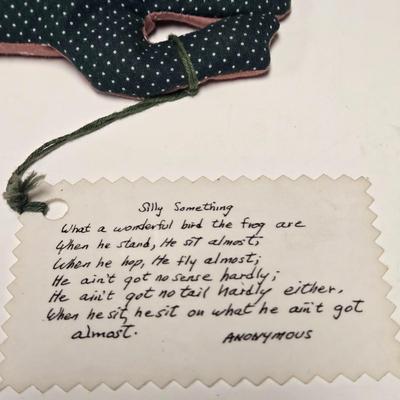 Silly Something
What a wonderful bird the frog are
When he stand, He sit almost;
When he hop, He fly almost;
He ain't got no sense hardly;
He ain't got no tail hardly either.
When he sit, he sit on what he ain't got
almost.
ANONYMOUS